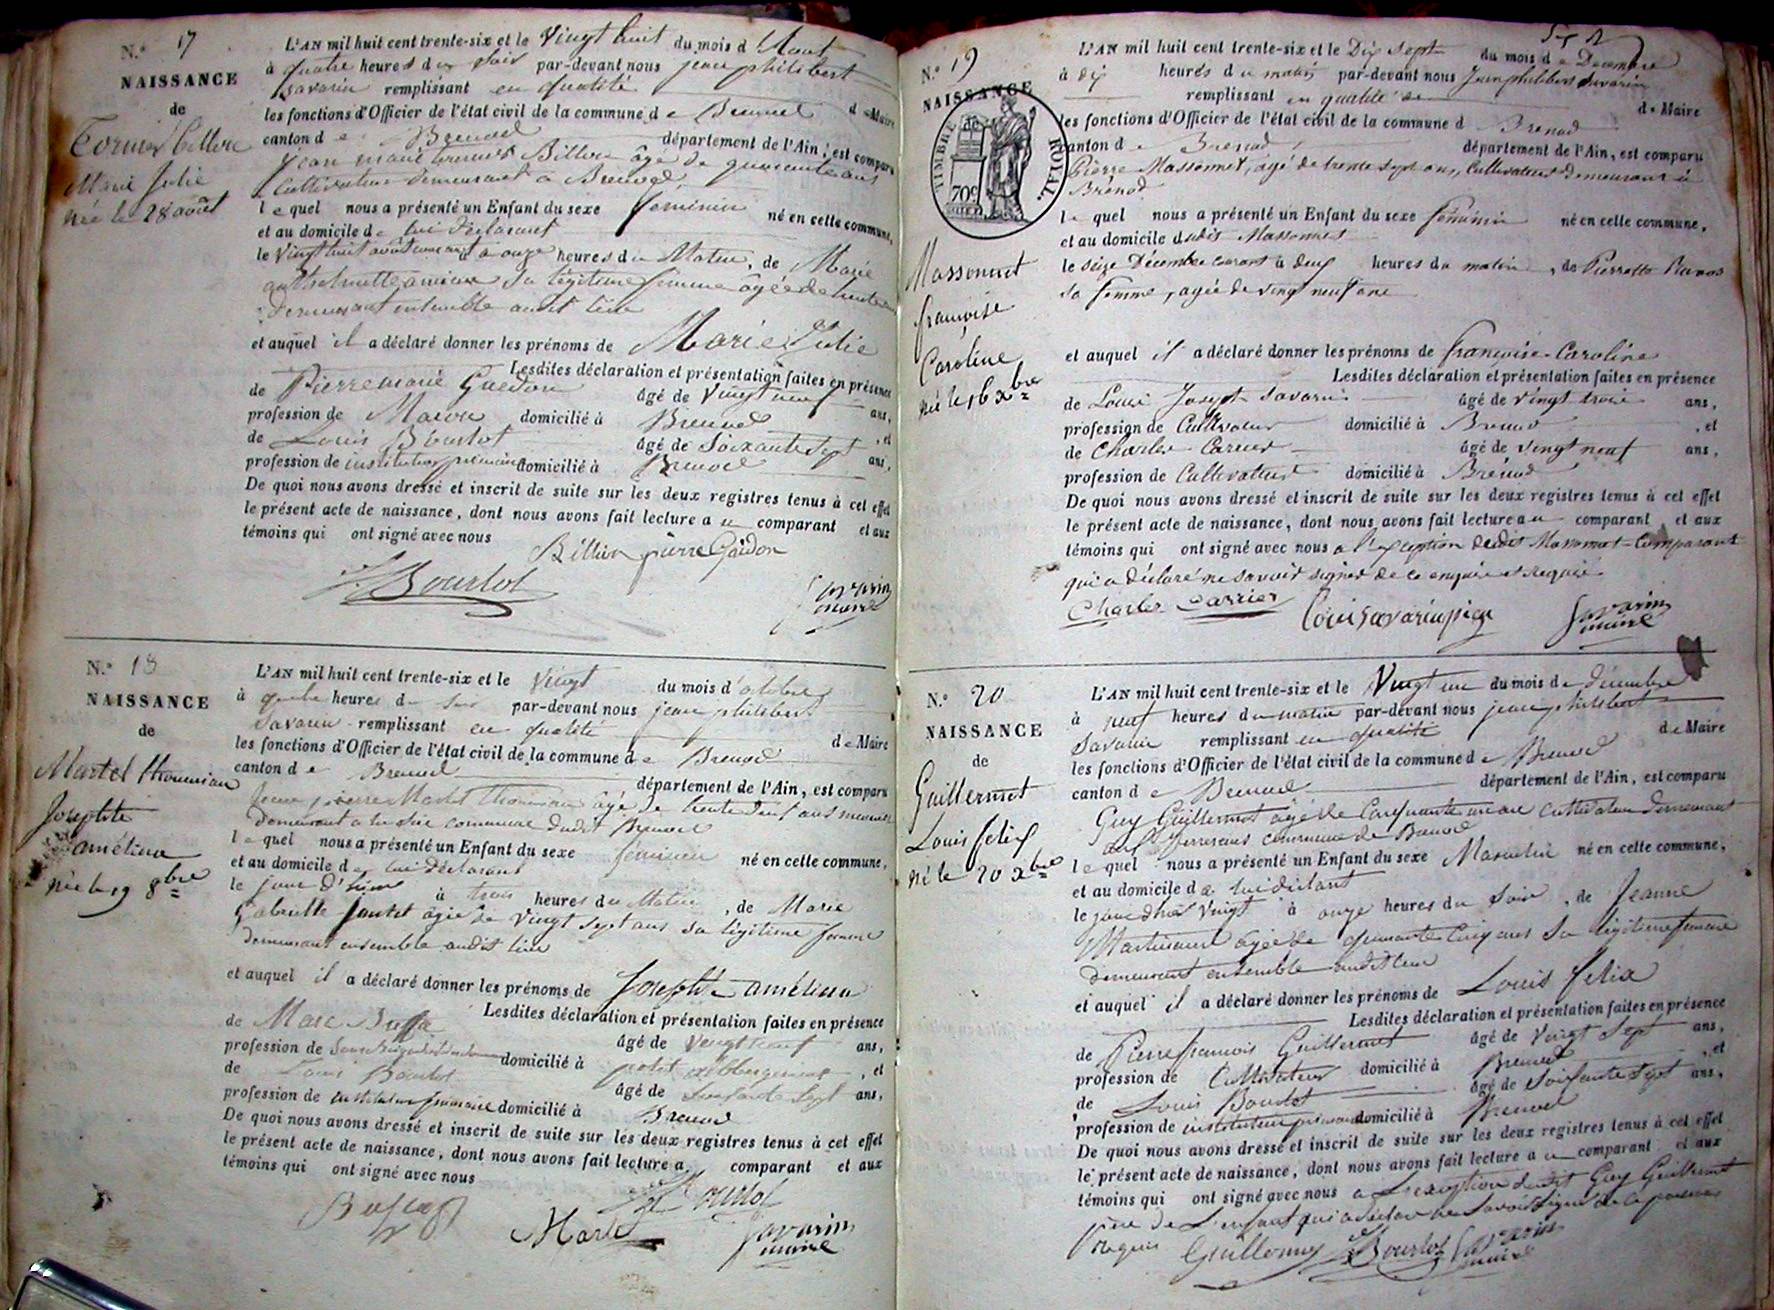 N.° 17
NAISSANCE
de
Billion
Marie Julie
née le 28 août
L'AN mil huit cent trente-six et le Vingt huit du mois d'Aout
à quatre heures du soir par-devant nous jean philibert
Savarin remplissant en qualité
les fonctions d'Officier de l'état civil de la commune de Brenod de Maire
canton de Brenod département de l'Ain, est comparu
jean marie Billion âgé de quarante ans
Cultivateur demeurant à Brenod
lequel nous a présenté un Enfant du sexe feminin né en cette commune,
et au domicile de lui déclarant
le Vingt huit août courant à onze heures du Matin, de Marie
sa légitime femme âgée de trente
demeurant ensemble audit lieu
et auquel il a déclaré donner les prénoms de Marie Julie
Lesdites déclaration et présentation faites en présence
de Pierre marie Guédon âgé de Vingt neuf ans,
profession de Macon domicilié à Brenod, et
de Louis Bourlot âgé de Soixante Sept ans,
profession de instituteur primaire domicilié à Brenod
De quoi nous avons dressé et inscrit de suite sur les deux registres tenus à cet effet
le présent acte de naissance, dont nous avons fait lecture au comparant et aux
témoins qui ont signé avec nous
Billion pierre Gaidon
Bourlot
Savarin
maire
N.° 18
NAISSANCE
de
Martel
Josephte
amélina
née le 19 8bre
L'AN mil huit cent trente-six et le Vingt du mois d'octobre
à quatre heures du soir par-devant nous jean philibert
Savarin remplissant en qualité
les fonctions d'Officier de l'état civil de la commune de Brenod de Maire
canton de Brenod département de l'Ain, est comparu
Jean pierre Martel âgé de trente deux ans
demeurant à commune dudit Brenod
lequel nous a présenté un Enfant du sexe féminin né en cette commune,
et au domicile de lui déclarant
le jour d'hier à trois heures du Matin, de Marie
Gabrielle âgée de Vingt sept ans sa légitime femme
demeurant ensemble audit lieu
et auquel il a déclaré donner les prénoms de Josephte amélina
Lesdites déclaration et présentation faites en présence
de Marc Buffa âgé de Vingt neuf ans,
profession de domicilié à petit abbergement, et
de Louis Bourlot âgé de Soixante Sept ans,
profession de instituteur primaire domicilié à Brenod
De quoi nous avons dressé et inscrit de suite sur les deux registres tenus à cet effet
le présent acte de naissance, dont nous avons fait lecture a comparant et aux
témoins qui ont signé avec nous
Bourlot
Martel
Savarin
maire
N.° 19
NAISSANCE
de
TIMBRE ROYAL
70c
Massonnet
françoise
Caroline
née le 16 Xbre
L'AN mil huit cent trente-six et le Dix sept du mois de Décembre
à dix heures du matin par-devant nous Jean philibert Savarin
remplissant en qualité de
les fonctions d'Officier de l'état civil de la commune d Brenod de Maire
canton de Brenod département de l'Ain, est comparu
Pierre Massonnet, agé de trente sept ans, Cultivateur demeurant à
Brénod
lequel nous a présenté un Enfant du sexe féminin né en cette commune,
et au domicile dudit Massonnet
le seize Décembre courant à deux heures du matin, de Pierrette
sa femme, agée de vingt neuf ans
et auquel il a déclaré donner les prénoms de françoise-Caroline
Lesdites déclaration et présentation faites en présence
de Louis Joseph Savarin âgé de vingt trois ans,
profession de Cultivateur domicilié à Brenod, et
de Charles Carrier âgé de vingt neuf ans,
profession de Cultivateur domicilié à Brénod
De quoi nous avons dressé et inscrit de suite sur les deux registres tenus à cet effet
le présent acte de naissance, dont nous avons fait lecture au comparant et aux
témoins qui ont signé avec nous a l'exception dudit Massonnet Comparant
qui a déclaré ne savoir signer de ce enquis et Requis
Charles Carrier
Savarin
maire
N.° 20
NAISSANCE
de
Guillermet
Louis felix
né le 20 Xbre
L'AN mil huit cent trente-six et le Vingt un du mois de décembre
à neuf heures du matin par-devant nous jean philibert
Savarin remplissant en qualité
les fonctions d'Officier de l'état civil de la commune de Brenod de Maire
canton de Brenod département de l'Ain, est comparu
Guy Guillermet âgé de Cinquante un an cultivateur demeurant
commune de Brenod
lequel nous a présenté un Enfant du sexe Masculin né en cette commune,
et au domicile de lui déclarant
le jour d'hier Vingt à onze heures du Soir, de Jeanne
âgée de quarante Cinq ans sa légitime femme
demeurant ensemble audit lieu
et auquel il a déclaré donner les prénoms de Louis felix
Lesdites déclaration et présentation faites en présence
de Pierre françois Guillermet âgé de Vingt Sept ans,
profession de Cultivateur domicilié à Brenod, et
de Louis Bourlot âgé de Soixante Sept ans,
profession de instituteur primaire domicilié à Brenod
De quoi nous avons dressé et inscrit de suite sur les deux registres tenus à cet effet
le présent acte de naissance, dont nous avons fait lecture au comparant et aux
témoins qui ont signé avec nous a L'exception dudit Guy Guillermet
père de L'enfant qui a déclaré ne Savoir Signer de ce
requis Bourlot Savarin
maire